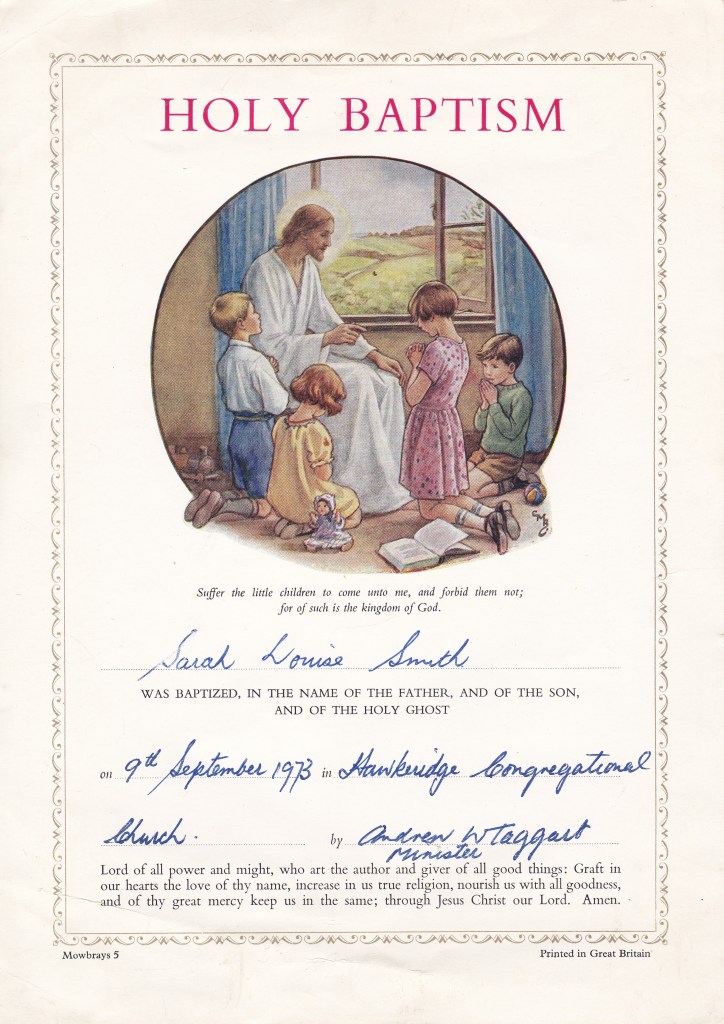 HOLY BAPTISM
CMB
Suffer the little children to come unto me, and forbid them not;
for of such is the kingdom of God.
Sarah Louise Smith
WAS BAPTIZED, IN THE NAME OF THE FATHER, AND OF THE SON,
AND OF THE HOLY GHOST
on 9th September 1973 in Hawkeridge Congregational
Church. by Andrew W Taggart
Minister
Lord of all power and might, who art the author and giver of all good things: Graft in
our hearts the love of thy name, increase in us true religion, nourish us with all goodness,
and of thy great mercy keep us in the same; through Jesus Christ our Lord. Amen.
Mowbrays 5 Printed in Great Britain